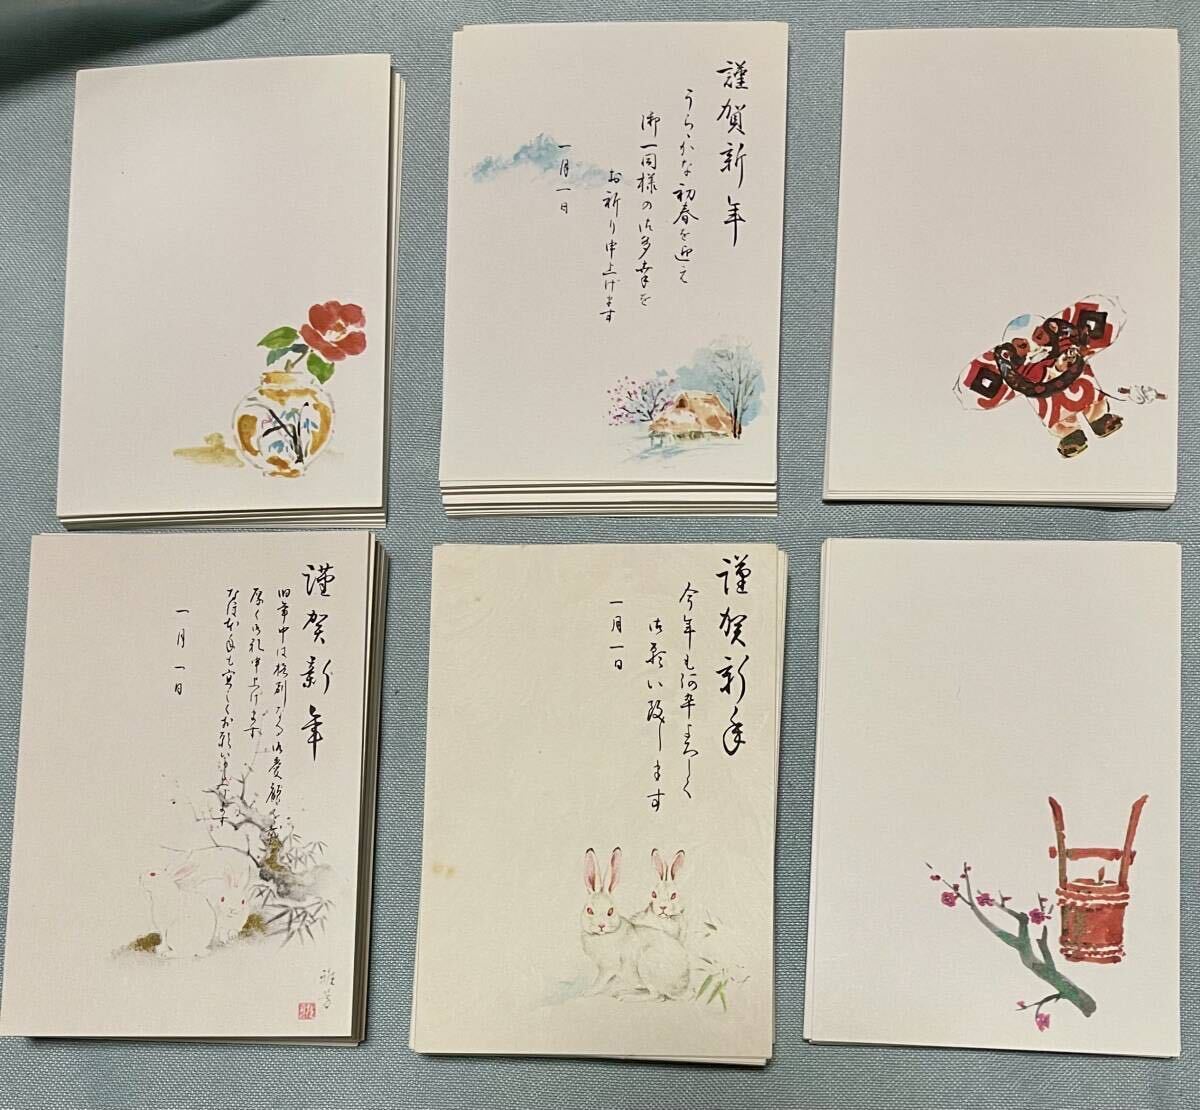 謹賀新年
うらゝかな初春を迎え
御一同様の御多幸を
お祈り申上げます
一月一日
謹賀新年
旧年中は格別なる御愛顧を賜り
厚く御礼申上げます
なほ本年も宜しくお願い申上げます
一月一日
雅芳
謹賀新年
今年も何卒よろしく
御願い致します
一月一日